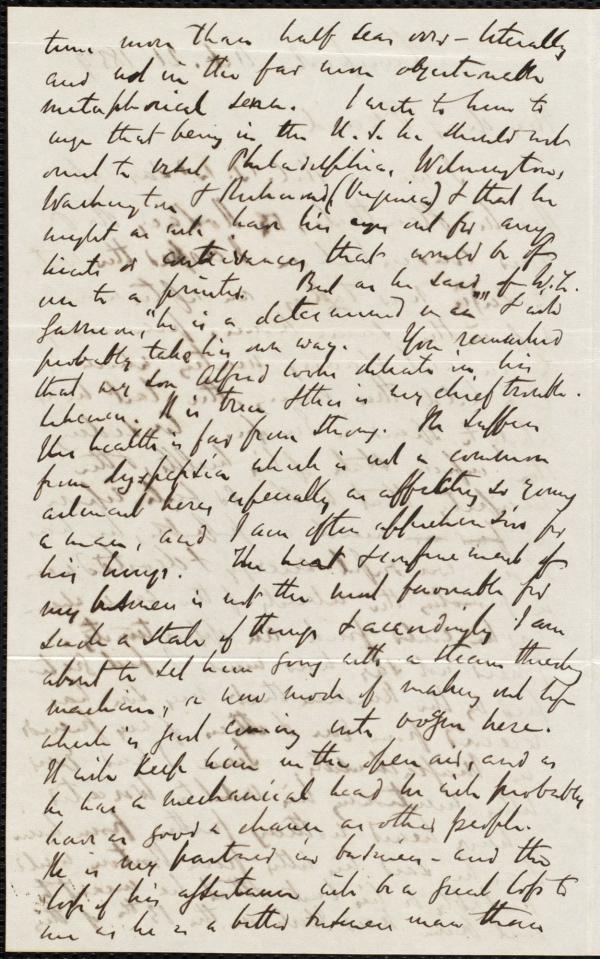 time more than half seas over – literally
and not in the far more objectionable
metaphorical sense. I wrote to him to
urge that being in the U.S. he should not
omit to visit Philadelphia, Wilmington,
Washington & Richmond (Virginia) & that he
might as well have his eyes out for any
hints or contrivances that would be of
use to a printer. But as he said of W.L.
Garrison, "he is a determined man" & will
probably take his own way. You remarked
that my son Alfred looks delicate in his
likeness. It is true & this is my chief trouble.
His health is far from strong. He suffers
from dyspepsia which is not a common
ailment here, especially as affecting so young
a man, and I am often apprehensive for
his lungs. The heat & confinement of
my business is not the most favorable for
such a state of things & accordingly I am
about to set him going with a steam threshing
machine, a new mode of making out
which is just coming into vogue here.
It will keep him in the open air, and as
he has a mechanical head he will probably
have as good a chance as other people.
He is my partner in business – and the
loss of his assistance will be a great loss to
me as he is a better business man than